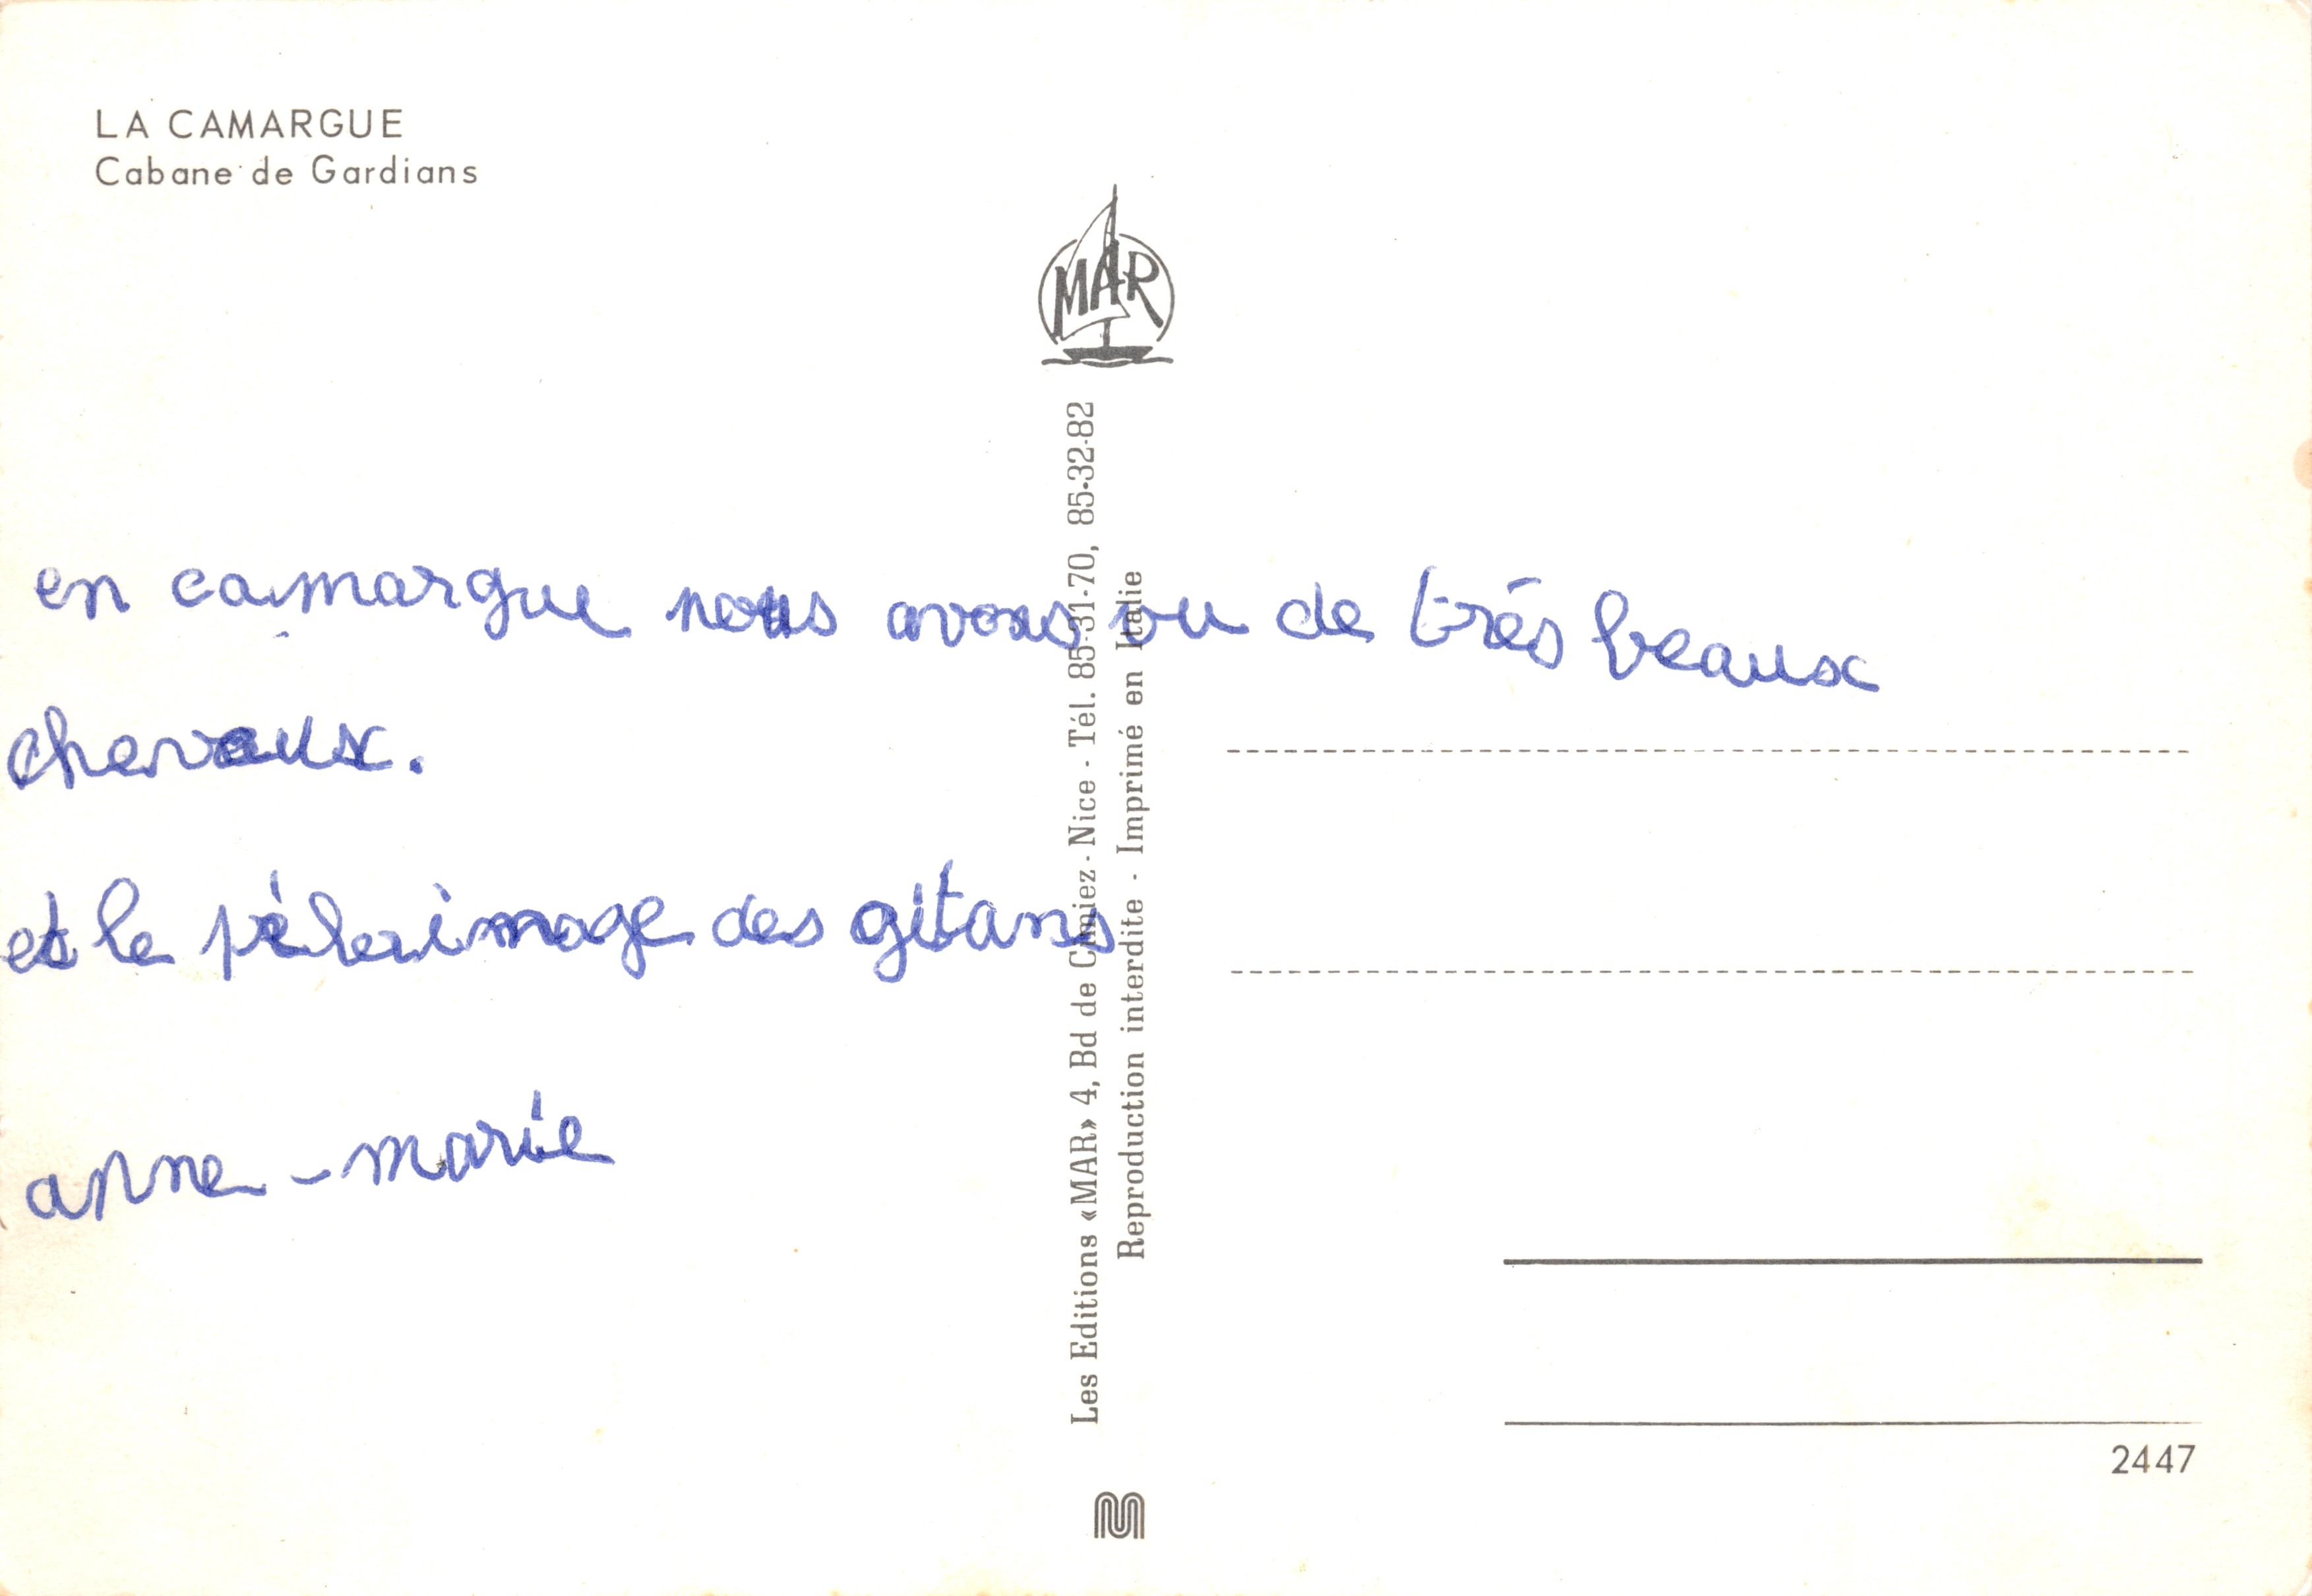 LA CAMARGUE
Cabane de Gardians
MAR
en camargue nous avons vu de très beaux
chevaux.
et le pélerimage des gitans
anne - marie
Les Editions «MAR» 4, Bd de Cimiez - Nice - Tél. 85-31-70, 85-32-82
Reproduction interdite - Imprimé en Italie
2447